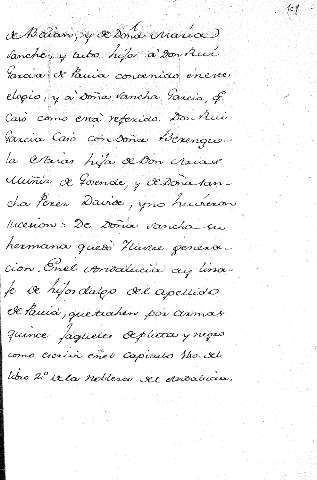 109
de Abdian, y de Doña Maria
Sanche, y tubo hijos à Don Rui
Garcia de Pavia contenido en este
elogio, y à Doña Sancha Garcia, q.
Casó como está referido. Don Rui
Garcia Casó con Doña Berengue-
la Arias hija de Don Arias
Muñiz de Gosende, y de Doña San-
cha Perez Davide, y no hubieron
sucesion: De Doña Sancha su
hermana quedó Ilustre genera-
cion. En el Andalucia ay lina-
je de hijosdalgo del apellido
de Pavia, que trahen por armas
quince jaqueles de plata y negro
como escrivi en el Capitulo 140. del
libro 2º de la Nobleza del Andalucia.